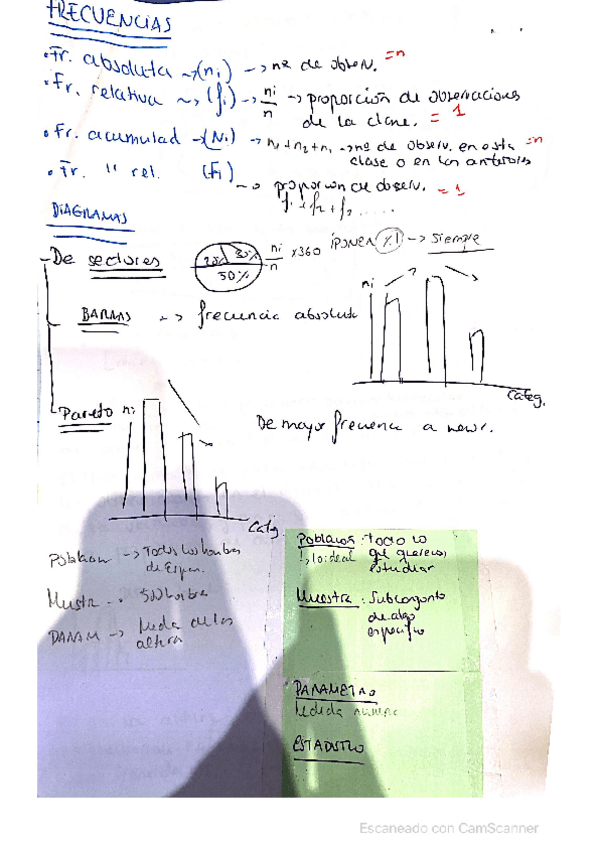 FRECUENCIAS
• Fr. absoluta → (ni) → nº de observ. = n
• Fr. relativa → (fi) → ni/n → proporción de observaciones
de la clase. = 1
• Fr. acumulad → (Ni) → n1 + n2 + ni → nº de observ. en esta = n
clase o en las anteriores
• Fr. " rel. (Fi)
→ proporcion de observ. = 1
f1 + f2 + f3 .....
DIAGRAMAS
- De sectores 20% 30% 50% ni/n x360 ¡PONER %! → Siempre
BARRAS → frecuencia absoluta
ni
Categ.
Pareto ni
De mayor frecuencia a menor.
Categ.
Poblacion → Todos los hombres
de Espan.
Muestra
altura
Población: Todo lo
que queremos
estudiar
Muestra: Subconjunto
de algo
especifico
PARAMETRO
Medida
ESTADISTICO
Escaneado con CamScanner